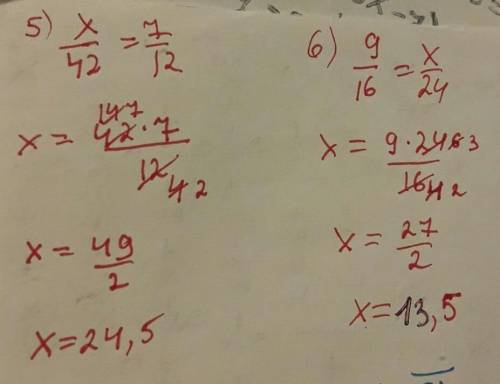 5) x/42 = 7/12
x = 42 14 7 · 7 / 12 4 2
x = 49/2
x = 24,5
6) 9/16 = x/24
x = 9 · 24 6 3 / 16 4 2
x = 27/2
x = 13,5